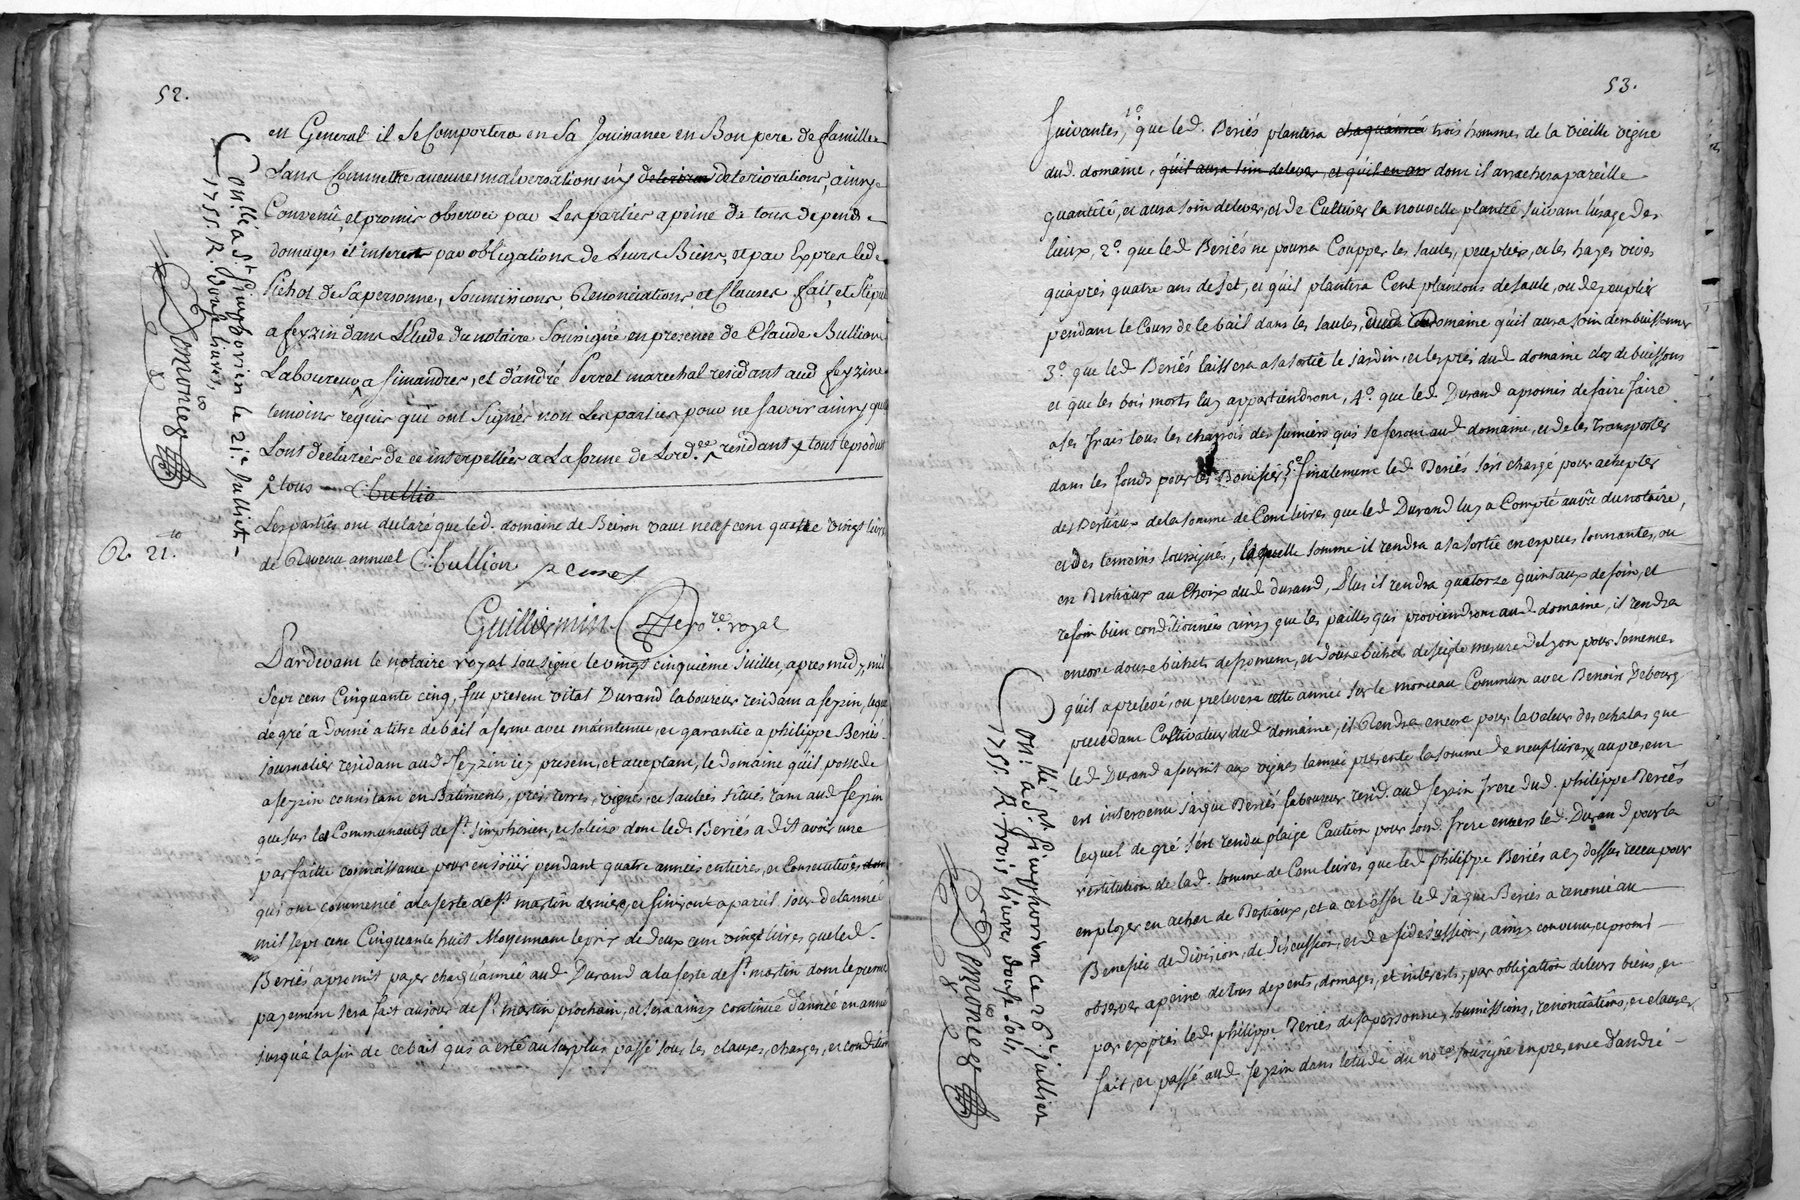 52.
en General il se Comportera en sa Jouissance en Bon pere de famille
sans Commettre aucunes malversations ny deteriorations, ainsy
Convenû, et promis observer par Les parties a peine de tous depends
domages et interests par obligations de Leurs Biens, et par Expres led.
Pichot de sa personne, soumissions Renonciations et Clauses fait, et
a feyzin dans L'Etude du notaire soussigné en presence de Claude Bullion
Laboureur a simandres, et d'andré Perret marechal residant aud feyzin
temoins requis qui ont signés non Les parties pour ne savoir ainsy qu
Lont declarés de ce interpellées a La forme de Lord.ce residant tout
tous C. bullio
Les parties ont declaré que led. domaine de Beiron vaut neuf cent quatre vingt livres
de Revenu annuel C. bullion perret
Guilliermin no.re royal
R. 21.
Con.llé a St Simphorien le 21e Juillet
1755. R. douze livres,
Domonceg
Pardevant le notaire royal soussigné le vingt cinquieme juillet, apres midy, mil
sept cens Cinquante cinq, fut present vital Durand laboureur residant a feyzin, lequel
de gré a donné a titre de bail a ferme avec maintenue, et garantie a philippe Beriés
journalier residant aud. feyzin icy present, et acceptant, le domaine qu'il possede
a feyzin consistant en Batiments, prés, terres, vignes, et saulées situés tant aud feyzin
que sur les Communautés de St. simphorien, et solaize dont led. Beriés a dit avoir une
parfaitte connoissance pour en joüir pendant quatre années entieres, et Consecutives
qui ont commencé a la feste de St martin dernier, et finiront a pareil jour de lanné
mil sept cent Cinquante huit Moyennant le prix de deux cent vingt livres que led.
Beriés a promis payer chaqu'année aud. Durand a la feste de St. martin dont le premier
payement sera fait au jour de St. martin prochain, et sera ainsy continué d'année en année
jusqu'a la fin de ce bail qui a esté au surplus passé sous les clauses, charges, et condition
53.
suivantes, 1°. que led. Beriés plantera chaqu'année trois hommes de la vieille vigne
dud. domaine, qu'il aura soin delever, et qu'il en ar dont il arrachera pareille
quantité, et aura soin delever, et de Cultiver la nouvelle plantée suivant l'usage des
lieux, 2°. que led. Beriés ne pourra Coupper les saules, peupliers, et les hayes vives
qu'après quatre ans de , et qu'il plantera Cent plançons de saule, ou de peuplier
pendant le Cours de le bail dans les saules, dud domaine qu'il aura soin dembuissonner
3°. que led. Beriés laissera a sa sortie le jardin, et les prés dud. domaine clos de buissons
et que les bois morts luy appartiendront, 4°. que led. Durand a promis de faire faire
a ses frais tous les charrois des fumiers qui se feront aud. domaine, et de les transporter
dans les fonds pour les Bonifier, 5°. finalement led. Beriés s'est chargé pour achepter
des Bestiaux de la somme de Cent livres que led. Durand luy a Compté au vû du notaire,
et des temoins soussignés, laquelle somme il rendra a sa sortie en especes sonnantes, ou
en Bestiaux au choix dud. durand, Plus il rendra quatorze quintaux de foin, et
refoin bien conditionnés ainsy que les pailles qui proviendront aud. domaine, il rendra
encore douze bichets de froment, et douze bichets de seigle mesure de lyon pour semences
qu'il a prelevé, ou prelevera cette année sur le morceau Commun avec Benoist Debourg
precedant Cultivateur dud. domaine, il Rendra encore pour la valeur des echalas que
led. Durand a fournit aux vignes lannée presente la somme de neuf livres, au present
est intervenu Jaque Beriés laboureur resid. aud feyzin frere dud. philippe Beriés
lequel de gré s'est rendu plaige Caution pour sond. frere envers led. Durand pour la
restitution de lad. somme de Cent livres, que led. philippe Beriés a cy dessus receu pour
employer en achet de Bestiaux, et a cet effet led. Jaque Beriés a renoncé au
Benefice de division, de discussion, et de fidejussion, ainsy convenu, et promis
observer a peine de tous depents, domages, et interets, par obligation de leurs biens, et
par exprés led. philippe Beriés de sa personne, soumissions, renonciations, et clauses
fait, et passé aud. feyzin dans letude du no.re soussigné en presence d'andré
Con.llé a St. Simphorien ce 26e juillet
1755. R. trois livres douze sols,
Domonceg